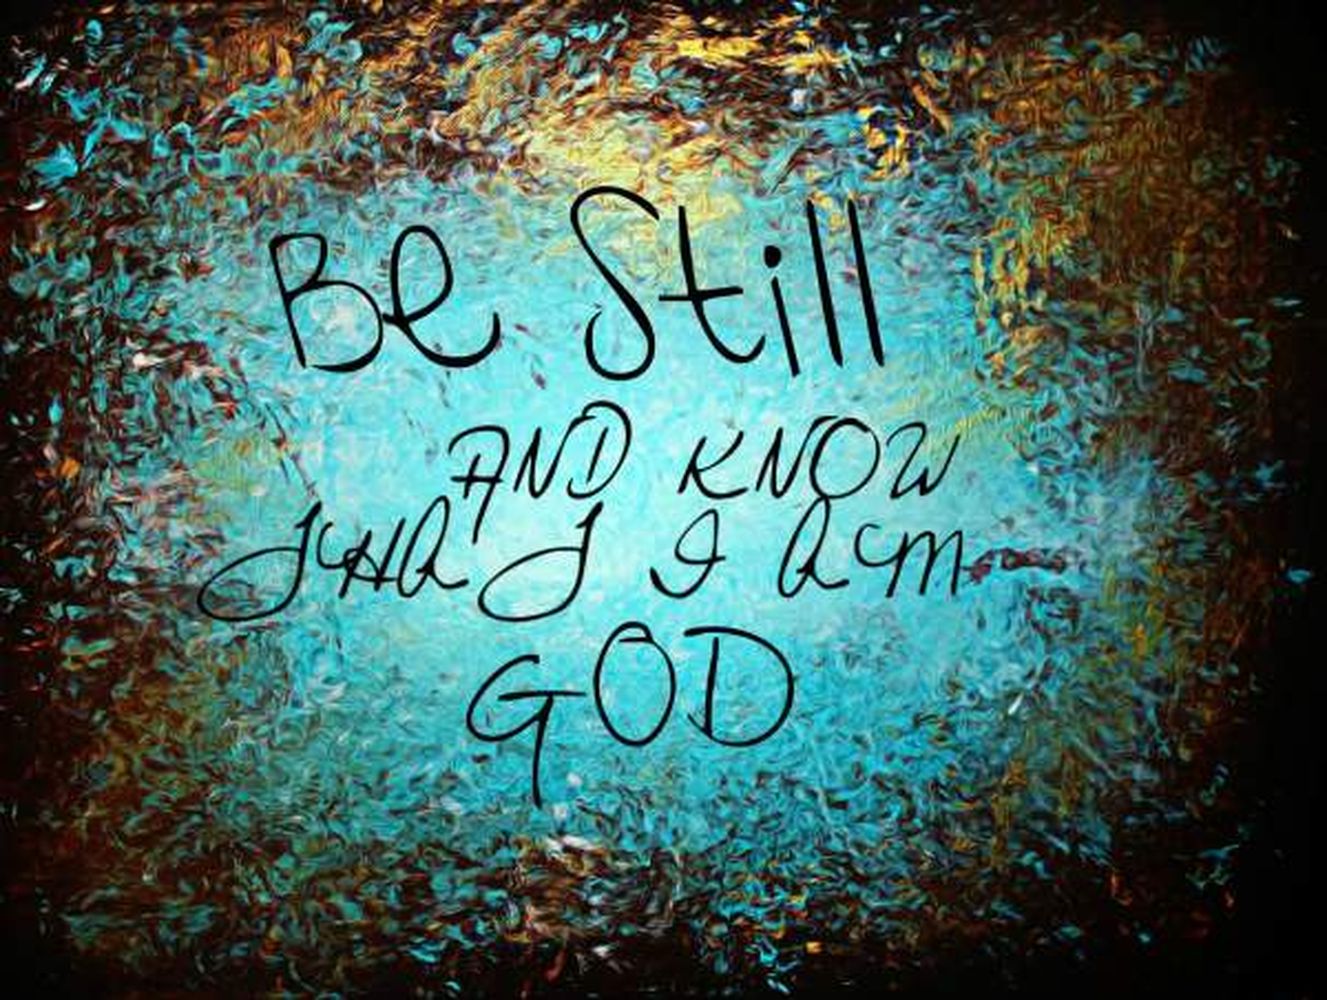 Be Still
AND KNOW
THAT I AM
GOD